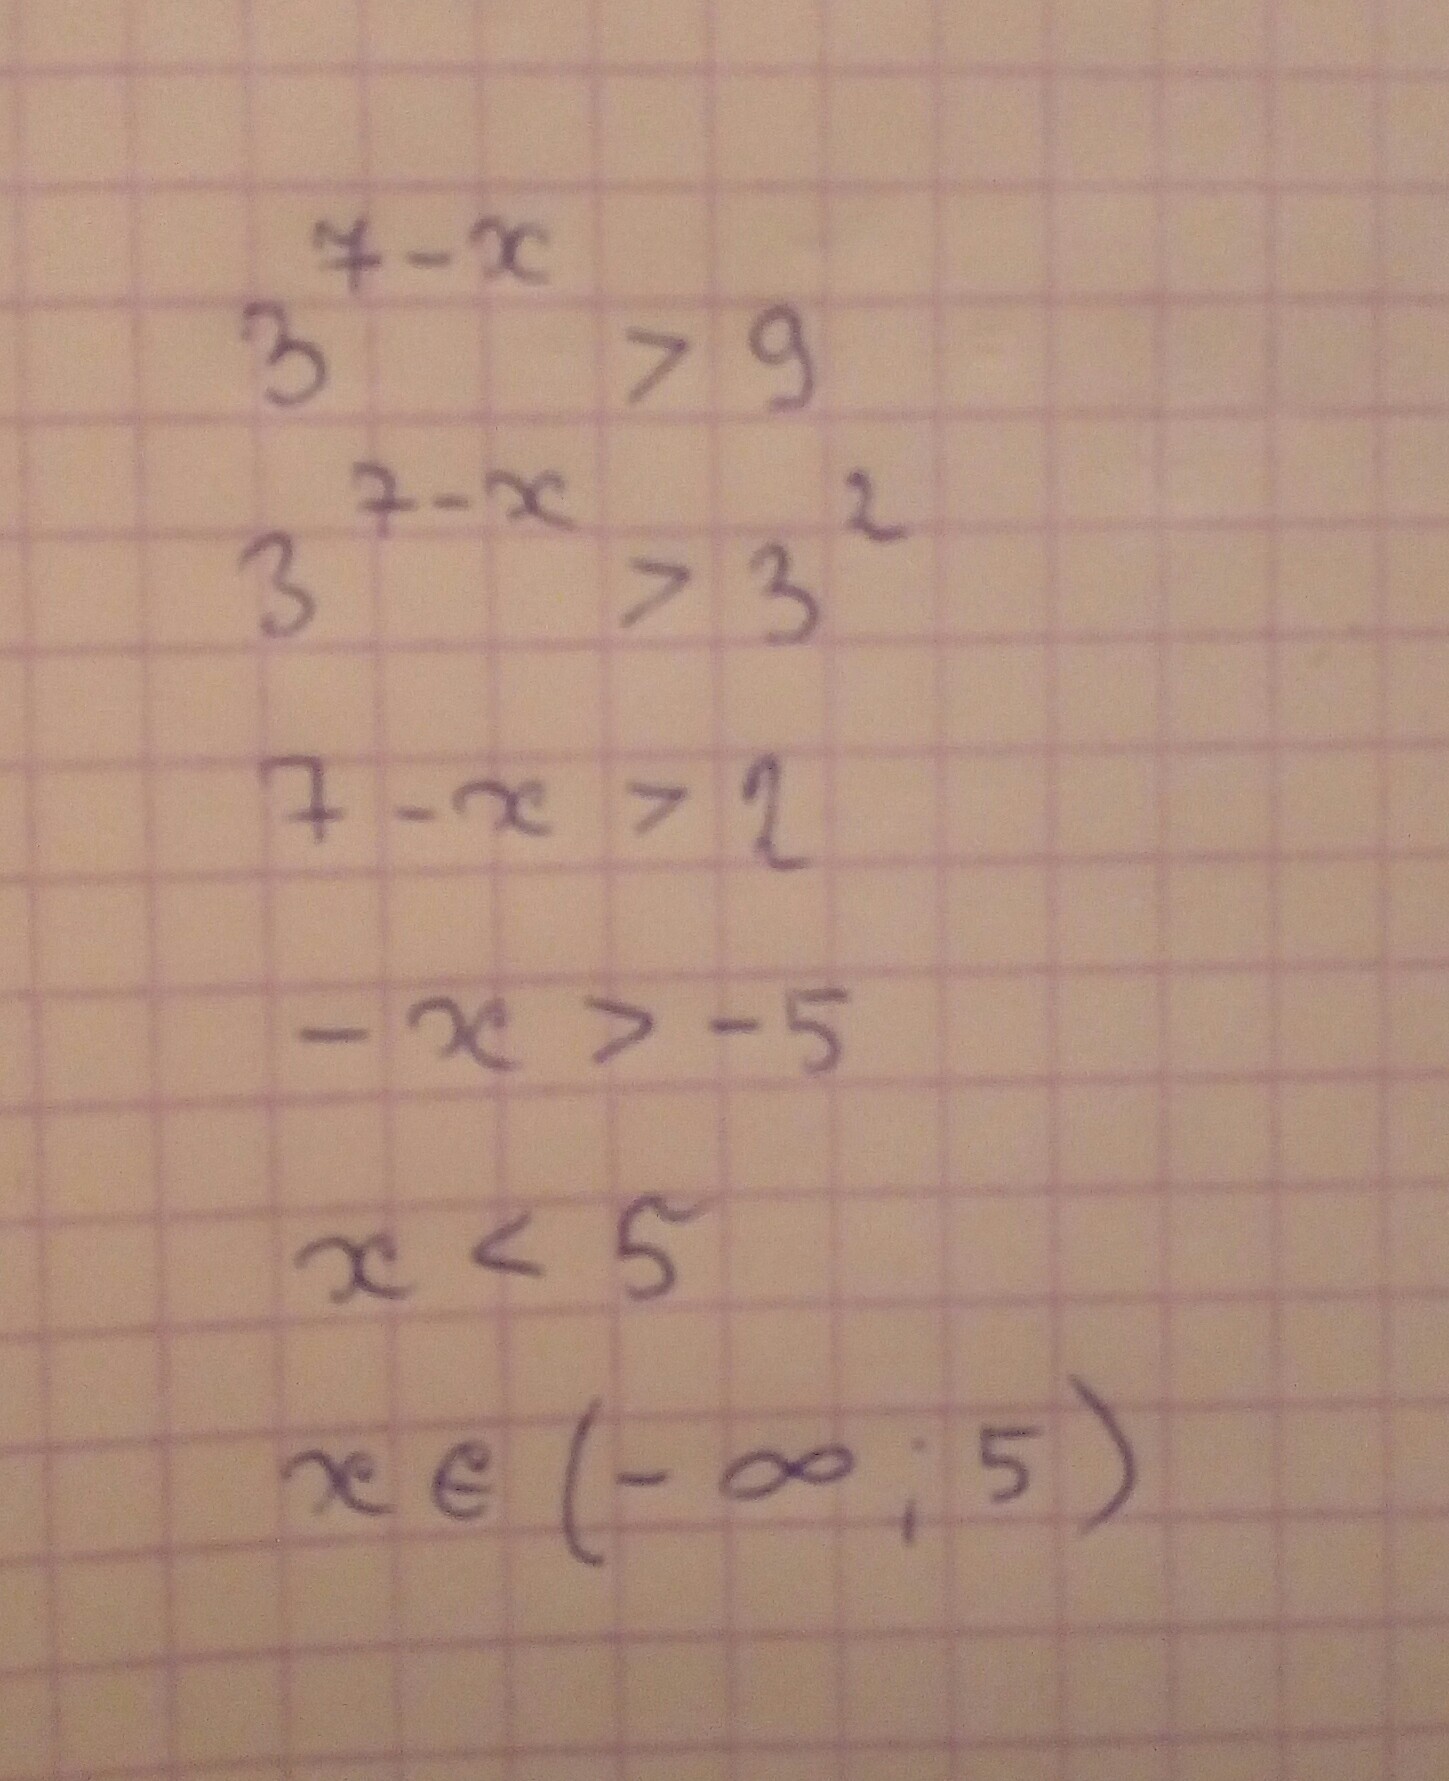 3^{7-x} > 9
3^{7-x} > 3^2
7 - x > 2
- x > - 5
x < 5
x ∈ (- ∞ ; 5)